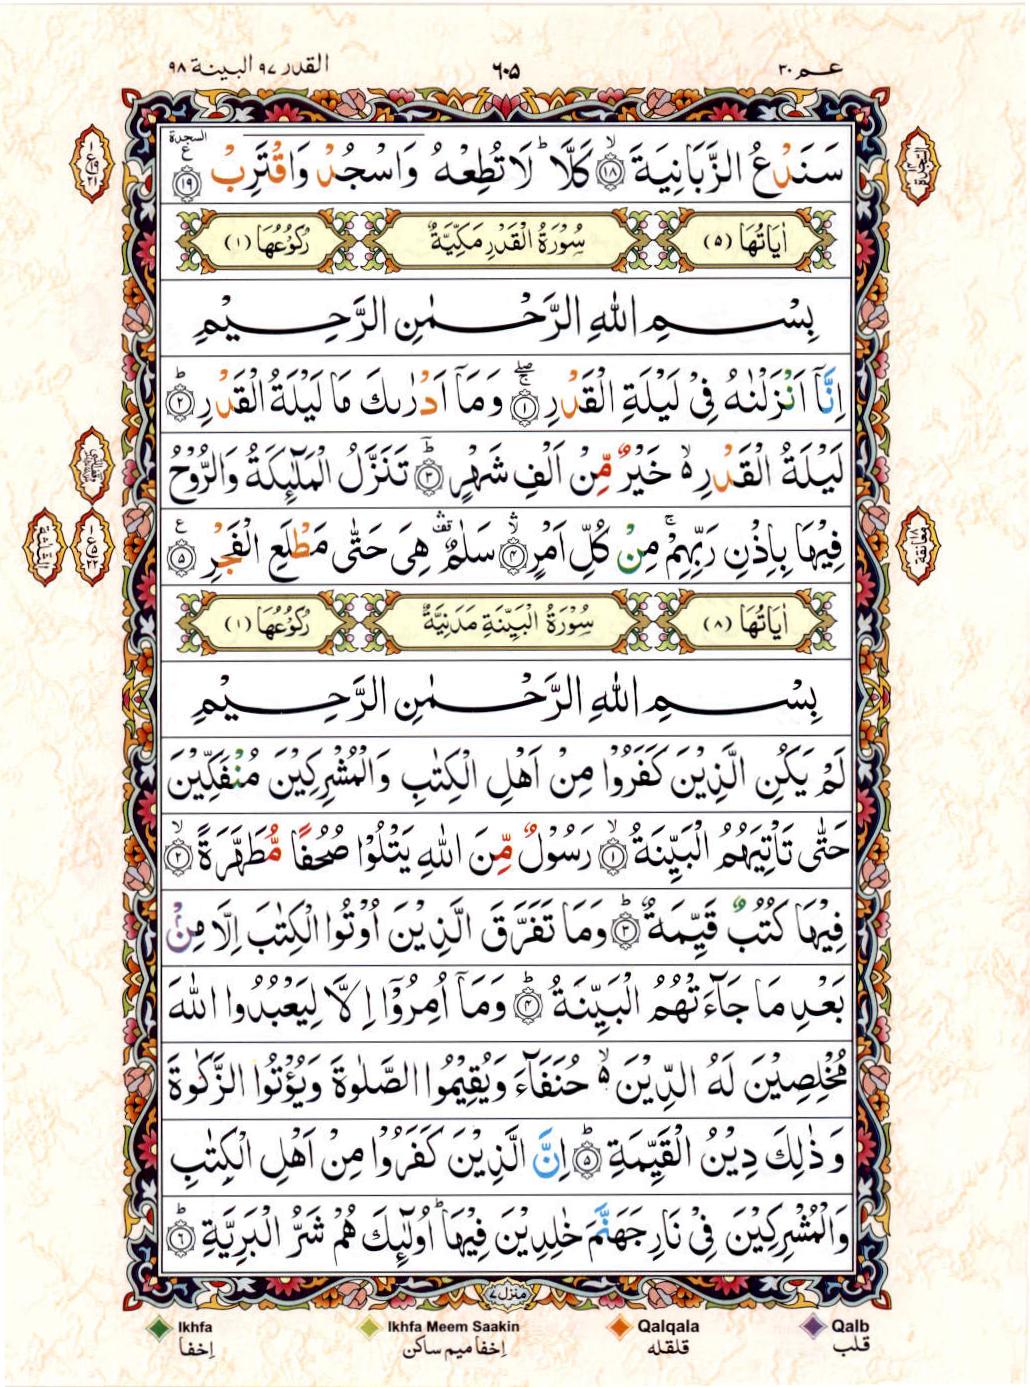 عــم ٣٠
٦٠٥
القدر ٩٧ البينة ٩٨
السجدة
سَنَدْعُ الزَّبَانِيَةَ ۙ﴿١٨﴾ كَلَّا ؕ لَا تُطِعْهُ وَاسْجُدْ وَاقْتَرِبْ ﴿١٩﴾ ع
اٰيَاتُهَا (٥) سُوْرَةُ الْقَدْرِ مَكِّيَّةٌ رُكُوْعُهَا (١)
بِسْمِ اللّٰهِ الرَّحْمٰنِ الرَّحِيْمِ
اِنَّاۤ اَنْزَلْنٰهُ فِیْ لَيْلَةِ الْقَدْرِ ﴿١﴾ وَمَاۤ اَدْرٰىكَ مَا لَيْلَةُ الْقَدْرِ ؕ﴿٢﴾
لَيْلَةُ الْقَدْرِ ۙ خَيْرٌ مِّنْ اَلْفِ شَهْرٍ ؕ﴿٣﴾ تَنَزَّلُ الْمَلٰٓئِكَةُ وَالرُّوْحُ
فِيْهَا بِاِذْنِ رَبِّهِمْ ۚ مِنْ كُلِّ اَمْرٍ ۛ﴿٤﴾ سَلٰمٌ ۛ هِیَ حَتّٰی مَطْلَعِ الْفَجْرِ ﴿٥﴾ ع
معانقة ١٨
اٰيَاتُهَا (٨) سُوْرَةُ الْبَيِّنَةِ مَدَنِيَّةٌ رُكُوْعُهَا (١)
بِسْمِ اللّٰهِ الرَّحْمٰنِ الرَّحِيْمِ
لَمْ يَكُنِ الَّذِيْنَ كَفَرُوْا مِنْ اَهْلِ الْكِتٰبِ وَالْمُشْرِكِيْنَ مُنْفَكِّيْنَ
حَتّٰی تَاْتِيَهُمُ الْبَيِّنَةُ ۙ﴿١﴾ رَسُوْلٌ مِّنَ اللّٰهِ يَتْلُوْا صُحُفًا مُّطَهَّرَةً ۙ﴿٢﴾
فِيْهَا كُتُبٌ قَيِّمَةٌ ؕ﴿٣﴾ وَمَا تَفَرَّقَ الَّذِيْنَ اُوْتُوا الْكِتٰبَ اِلَّا مِنْۢ
بَعْدِ مَا جَآءَتْهُمُ الْبَيِّنَةُ ؕ﴿٤﴾ وَمَاۤ اُمِرُوْۤا اِلَّا لِيَعْبُدُوا اللّٰهَ
مُخْلِصِيْنَ لَهُ الدِّيْنَ ۙ حُنَفَآءَ وَيُقِيْمُوا الصَّلٰوةَ وَيُؤْتُوا الزَّكٰوةَ
وَذٰلِكَ دِيْنُ الْقَيِّمَةِ ؕ﴿٥﴾ اِنَّ الَّذِيْنَ كَفَرُوْا مِنْ اَهْلِ الْكِتٰبِ
وَالْمُشْرِكِيْنَ فِیْ نَارِ جَهَنَّمَ خٰلِدِيْنَ فِيْهَا ؕ اُولٰٓئِكَ هُمْ شَرُّ الْبَرِيَّةِ ؕ﴿٦﴾
منزل ٧
Ikhfa Ikhfa Meem Saakin Qalqala Qalb
اِخفا اِخفا میم ساکن قلقله قلب